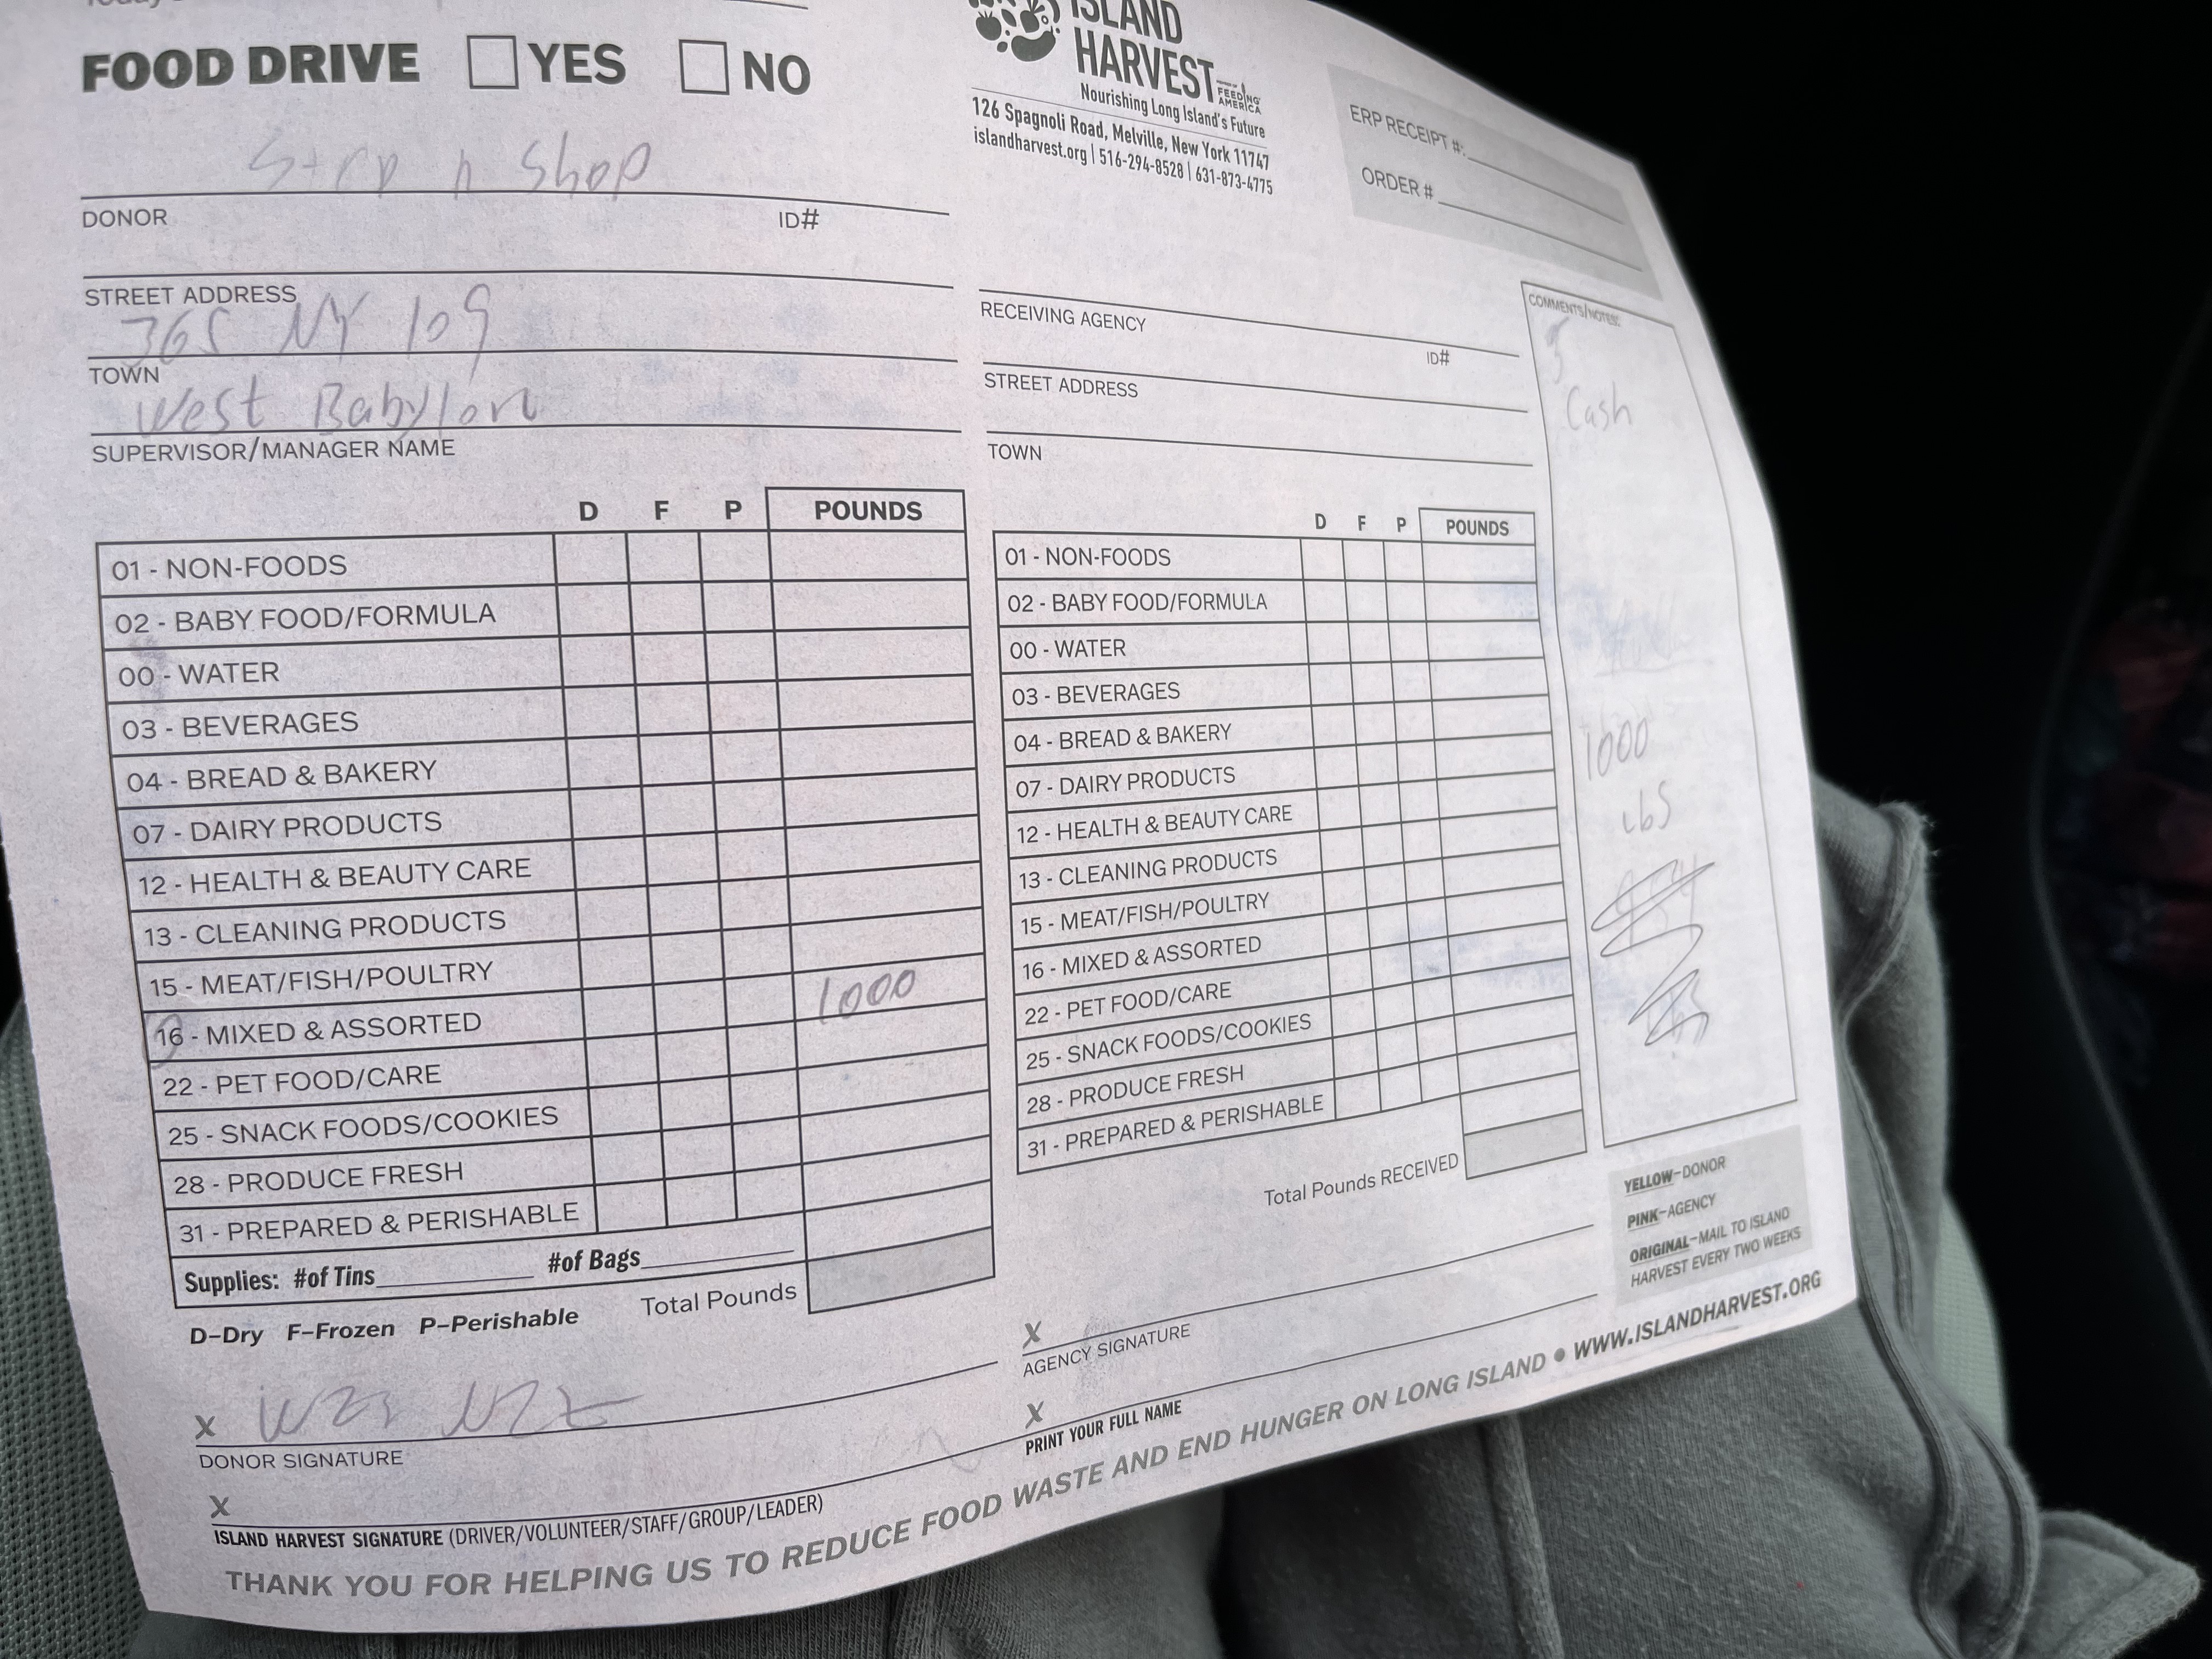 FOOD DRIVE YES NO
ISLAND
HARVEST
FEEDING
AMERICA
Nourishing Long Island's Future
126 Spagnoli Road, Melville, New York 11747
islandharvest.org | 516-294-8528 | 631-873-4775
ERP RECEIPT #:
ORDER #
n Shop
DONOR ID#
STREET ADDRESS
365 NY 109
TOWN
West Babylon
SUPERVISOR/MANAGER NAME
RECEIVING AGENCY
ID#
STREET ADDRESS
TOWN
D F P POUNDS
01 - NON-FOODS
02 - BABY FOOD/FORMULA
00 - WATER
03 - BEVERAGES
04 - BREAD & BAKERY
07 - DAIRY PRODUCTS
12 - HEALTH & BEAUTY CARE
13 - CLEANING PRODUCTS
15 - MEAT/FISH/POULTRY
16 - MIXED & ASSORTED 1000
22 - PET FOOD/CARE
25 - SNACK FOODS/COOKIES
28 - PRODUCE FRESH
31 - PREPARED & PERISHABLE
Supplies: #of Tins #of Bags
Total Pounds
D–Dry F–Frozen P–Perishable
X
DONOR SIGNATURE
X
ISLAND HARVEST SIGNATURE (DRIVER/VOLUNTEER/STAFF/GROUP/LEADER)
D F P POUNDS
01 - NON-FOODS
02 - BABY FOOD/FORMULA
00 - WATER
03 - BEVERAGES
04 - BREAD & BAKERY
07 - DAIRY PRODUCTS
12 - HEALTH & BEAUTY CARE
13 - CLEANING PRODUCTS
15 - MEAT/FISH/POULTRY
16 - MIXED & ASSORTED
22 - PET FOOD/CARE
25 - SNACK FOODS/COOKIES
28 - PRODUCE FRESH
31 - PREPARED & PERISHABLE
Total Pounds RECEIVED
X
AGENCY SIGNATURE
X
PRINT YOUR FULL NAME
COMMENTS/NOTES:
Cash
1000
lbs
YELLOW–DONOR
PINK–AGENCY
ORIGINAL–MAIL TO ISLAND
HARVEST EVERY TWO WEEKS
THANK YOU FOR HELPING US TO REDUCE FOOD WASTE AND END HUNGER ON LONG ISLAND • WWW.ISLANDHARVEST.ORG